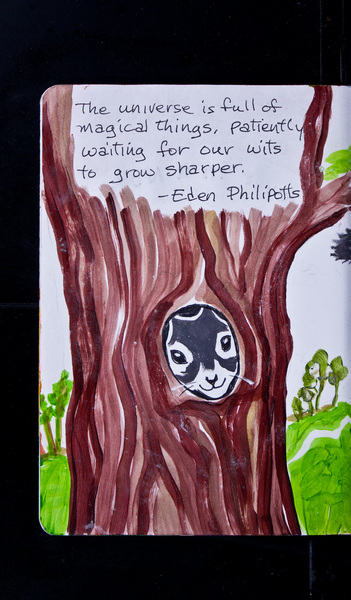 The universe is full of
magical things, patiently
waiting for our wits
to grow sharper.
-Eden Philipotts